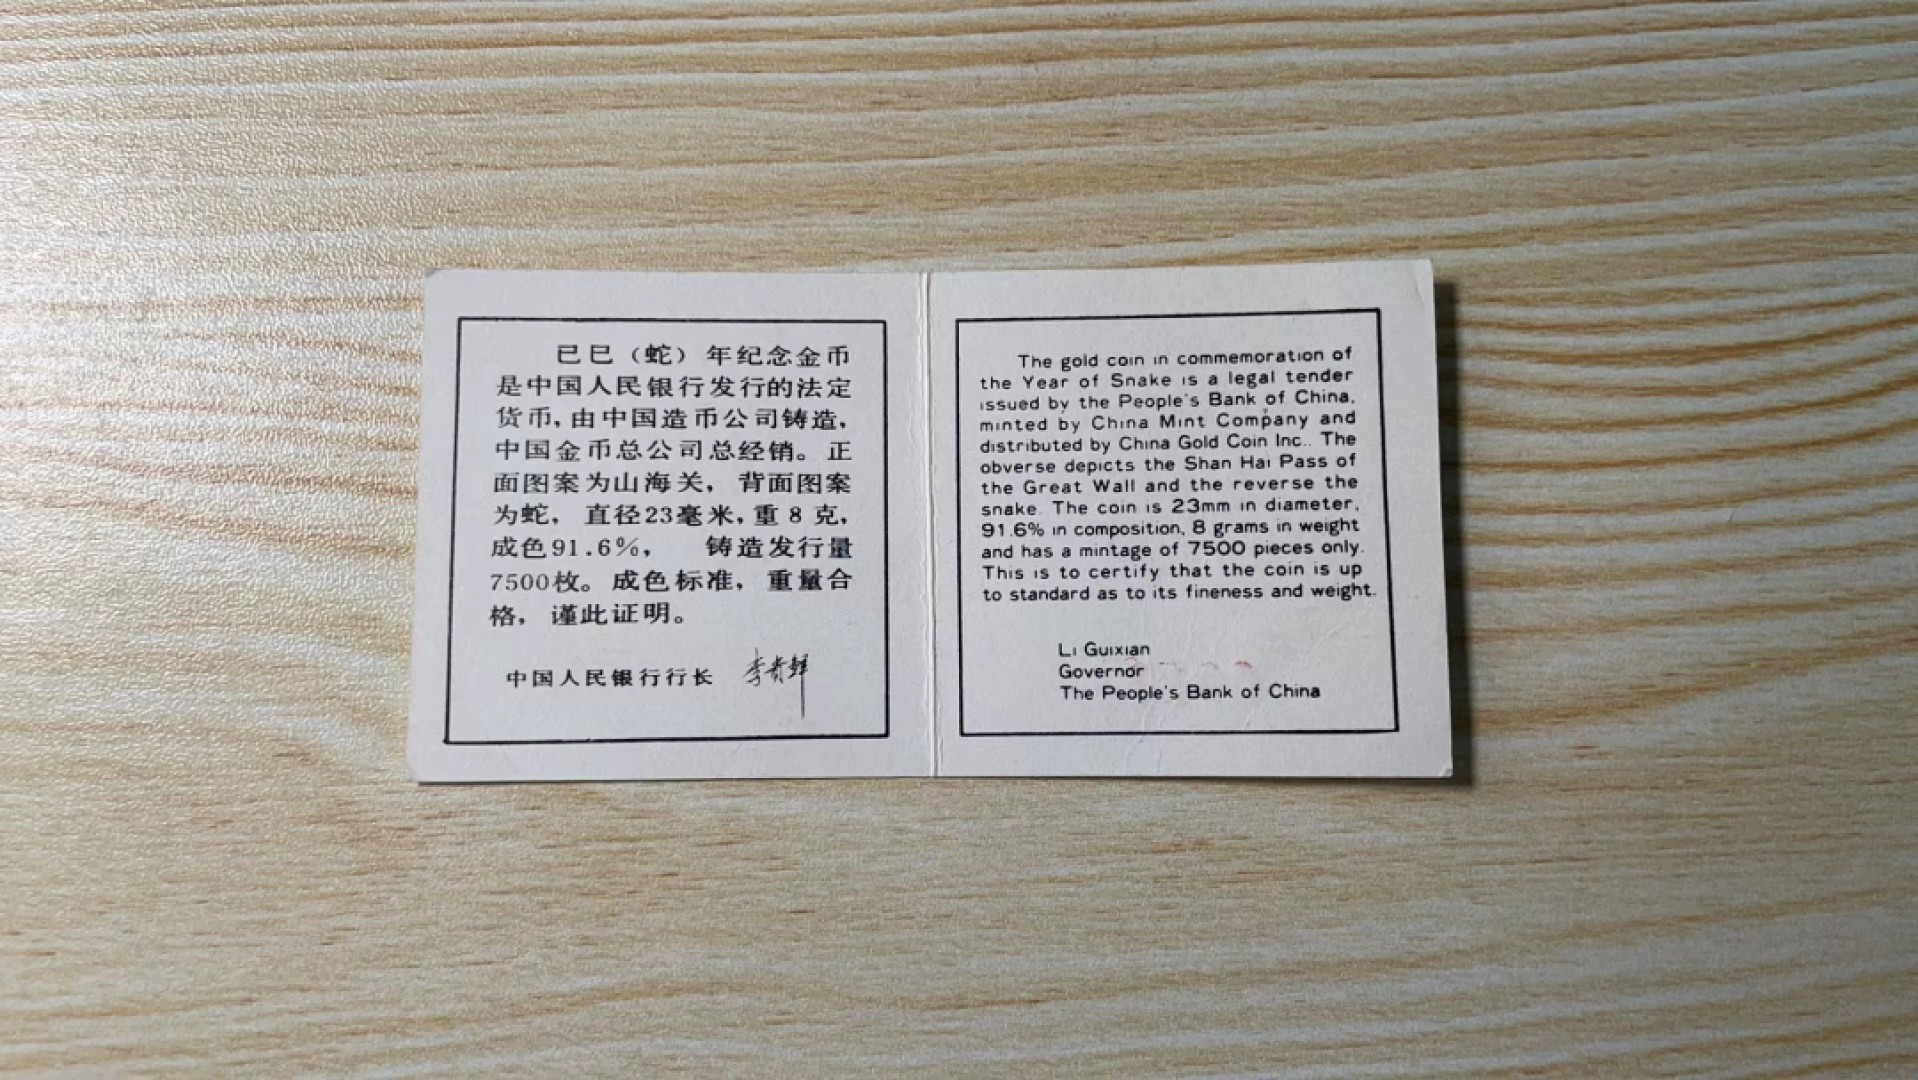 已巳（蛇）年纪念金币
是中国人民银行发行的法定
货币,由中国造币公司铸造,
中国金币总公司总经销。正
面图案为山海关，背面图案
为蛇，直径23毫米,重8克,
成色91.6%， 铸造发行量
7500枚。成色标准，重量合
格，谨此证明。
中国人民银行行长 李贵鲜
The gold coin in commemoration of
the Year of Snake is a legal tender
issued by the People's Bank of China,
minted by China Mint Company and
distributed by China Gold Coin Inc.. The
obverse depicts the Shan Hai Pass of
the Great Wall and the reverse the
snake. The coin is 23mm in diameter,
91.6% in composition, 8 grams in weight
and has a mintage of 7500 pieces only.
This is to certify that the coin is up
to standard as to its fineness and weight.
Li Guixian
Governor
The People's Bank of China